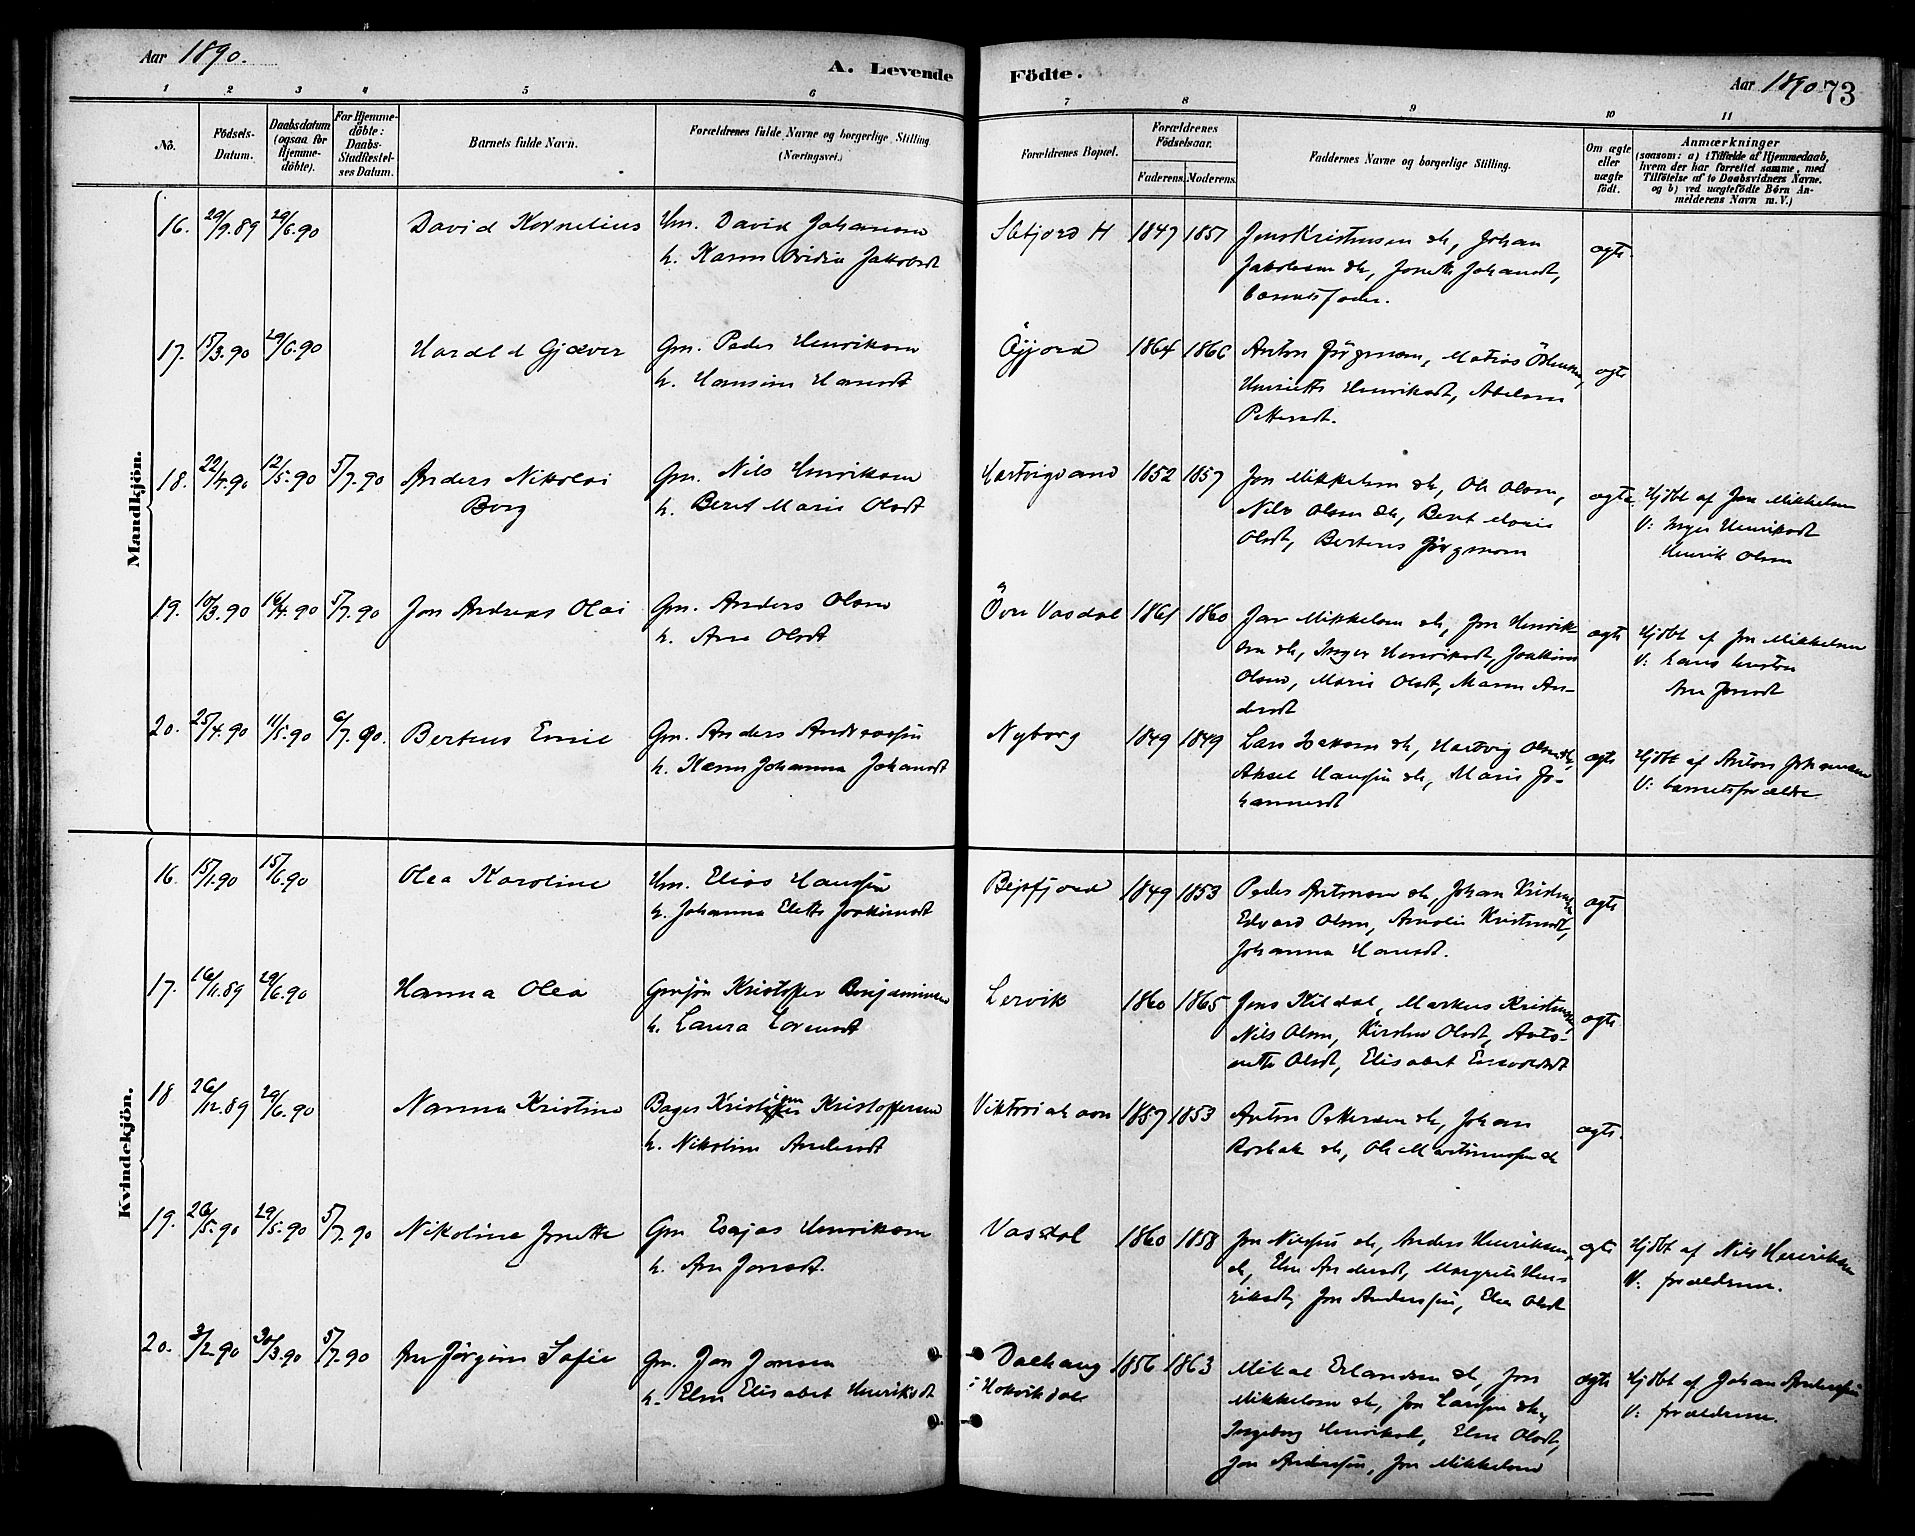 Aar 1890.
A. Levende Födte.
Aar 1890 73
1 2 3 4 5 6 7 8 9 10 11
Nô.
Födsels-Datum.
Daabsdatum (ogsaa for Hjemme-döbte).
For Hjemme-döbte: Daabs-Stadfæstel-ses Datum.
Barnets fulde Navn.
Forældrenes fulde Navne og borgerlige Stilling (Næringsvei.)
Forældrenes Bopæl.
Forældrenes Födselsaar.
Faderens. Moderens.
Faddernes Navne og borgerlige Stilling.
Om ægte eller uægte födt.
Anmærkninger
(saasom: a) i Tilfælde af Hjemmedaab, hvem der har forrettet samme, med Tilföielse af to Daabsvidners Navne. og b) ved uægtefödte Börn Anmelderens Navn m. V.)
Mandkjön.
16. 29/9.89 29/6.90 David Kornelius Um. David Johansen 1847 1857 Jens Kristensen sk, Johan ægte.
h. Karen Jakobsdt Jakobsen sk, Johansdt,
barnets fader.
17. 15/3.90 29/6.90 Harald Gjæver Gm. Peder Henriksen Öijord 1864 1866 Anton Jörgensen, Matias ægte
h. Hansine Hansdt Henriette Henriksdt,
Pettersdt.
18. 22/4.90 12/5.90 5/7.90 Anders Nikolai Gm. Nils Henriksen Hartvigvand 1852 1857 Jon Mikkelsen sk, Ole Olsen, ægte Hjdbt af Jon Mikkelsen
Borg h. Beret Marie Olsdt Nils Olsen sk, Beret Marie V: Inger Henriksdt
Olsdt, Berteus Jörgensen Henrik Olsen
19. 10/3.90 16/4.90 5/7.90 Jon Andreas Olai Gm. Anders Olsen Övre Vasdal 1861 1860 Jon Mikkelsen sk, Jon Henrik- ægte Hjdbt af Jon Mikkelsen
h. Ane Olsdt sen sk, Inger Henriksdt, Joakim V: hans hustru
Olsen, Marie Olsdt, Maren An- Ane Jonsdt
dersdt
20. 25/4.90 11/5.90 6/7.90. Berteus Emil Gm. Anders Andreassen Nyborg 1849 1849 Lars Isaksen sk, Hartvig Olsen sk, ægte Hjdbt af Anton Johansen
h. Karen Johanna Johansdt Aksel Hansen sk, Marie Jo- V: barnets forældre.
hannesdt
Kvindekjön.
16. 15/1.90 15/6.90 Olea Karoline Um. Elias Hansen Beisfjord 1849 1853 Peder Antonsen sk, Johan ægte
h. Johanna Elette Joakimsdt Edvard Olsen, Kristensdt,
Johanna Hansdt.
17. 16/11.89 29/6.90 Hanna Olea Gmsön Kristoffer Benjaminsen Lervik 1860 1865 Jens Kildal, Markus Kristensen, ægte
h. Laura Lorensdt Nils Olsen, Kirsten Olsdt, Anto-
nette Olsdt, Elisabet
18 26/12.89 29/6.90 Nanna Kristine Bager Kristian Kristoffersen Viktoriahavn 1857 1853 Anton Pettersen sk, Johan ægte.
h. Nikoline Andersdt Rosbak sk, Ole Martinussen sk
19. 26/5.90 29/5.90 5/7.90 Nikoline Jonette Gm Esajas Henriksen Vasdal 1860 1858 Jon Nilssen sk, Anders Henriksen ægte Hjdbt af Nils Henriksen
h. Ane Jonsdt. sk, Elen Andersdt, Margrete Hen- V: forældrene.
riksdt, Jon Anderssen, Elen Olsdt
20. 3/2.90 30/3.90 5/7.90 Ane Jörgine Sofie Gm. Jon Jonsen Dalhaug 1856 1863 Mikal Erlandsen sk, Jon ægte Hjdbt af Johan Anderssen
h. Elen Elisabet Henriksdt i Hokvikdal Mikkelsen sk, Jon Larssen sk, V: forældrene.
Ingeborg Henriksdt, Elen Olsdt,
Jon Anderssen, Jon Mikkelsen